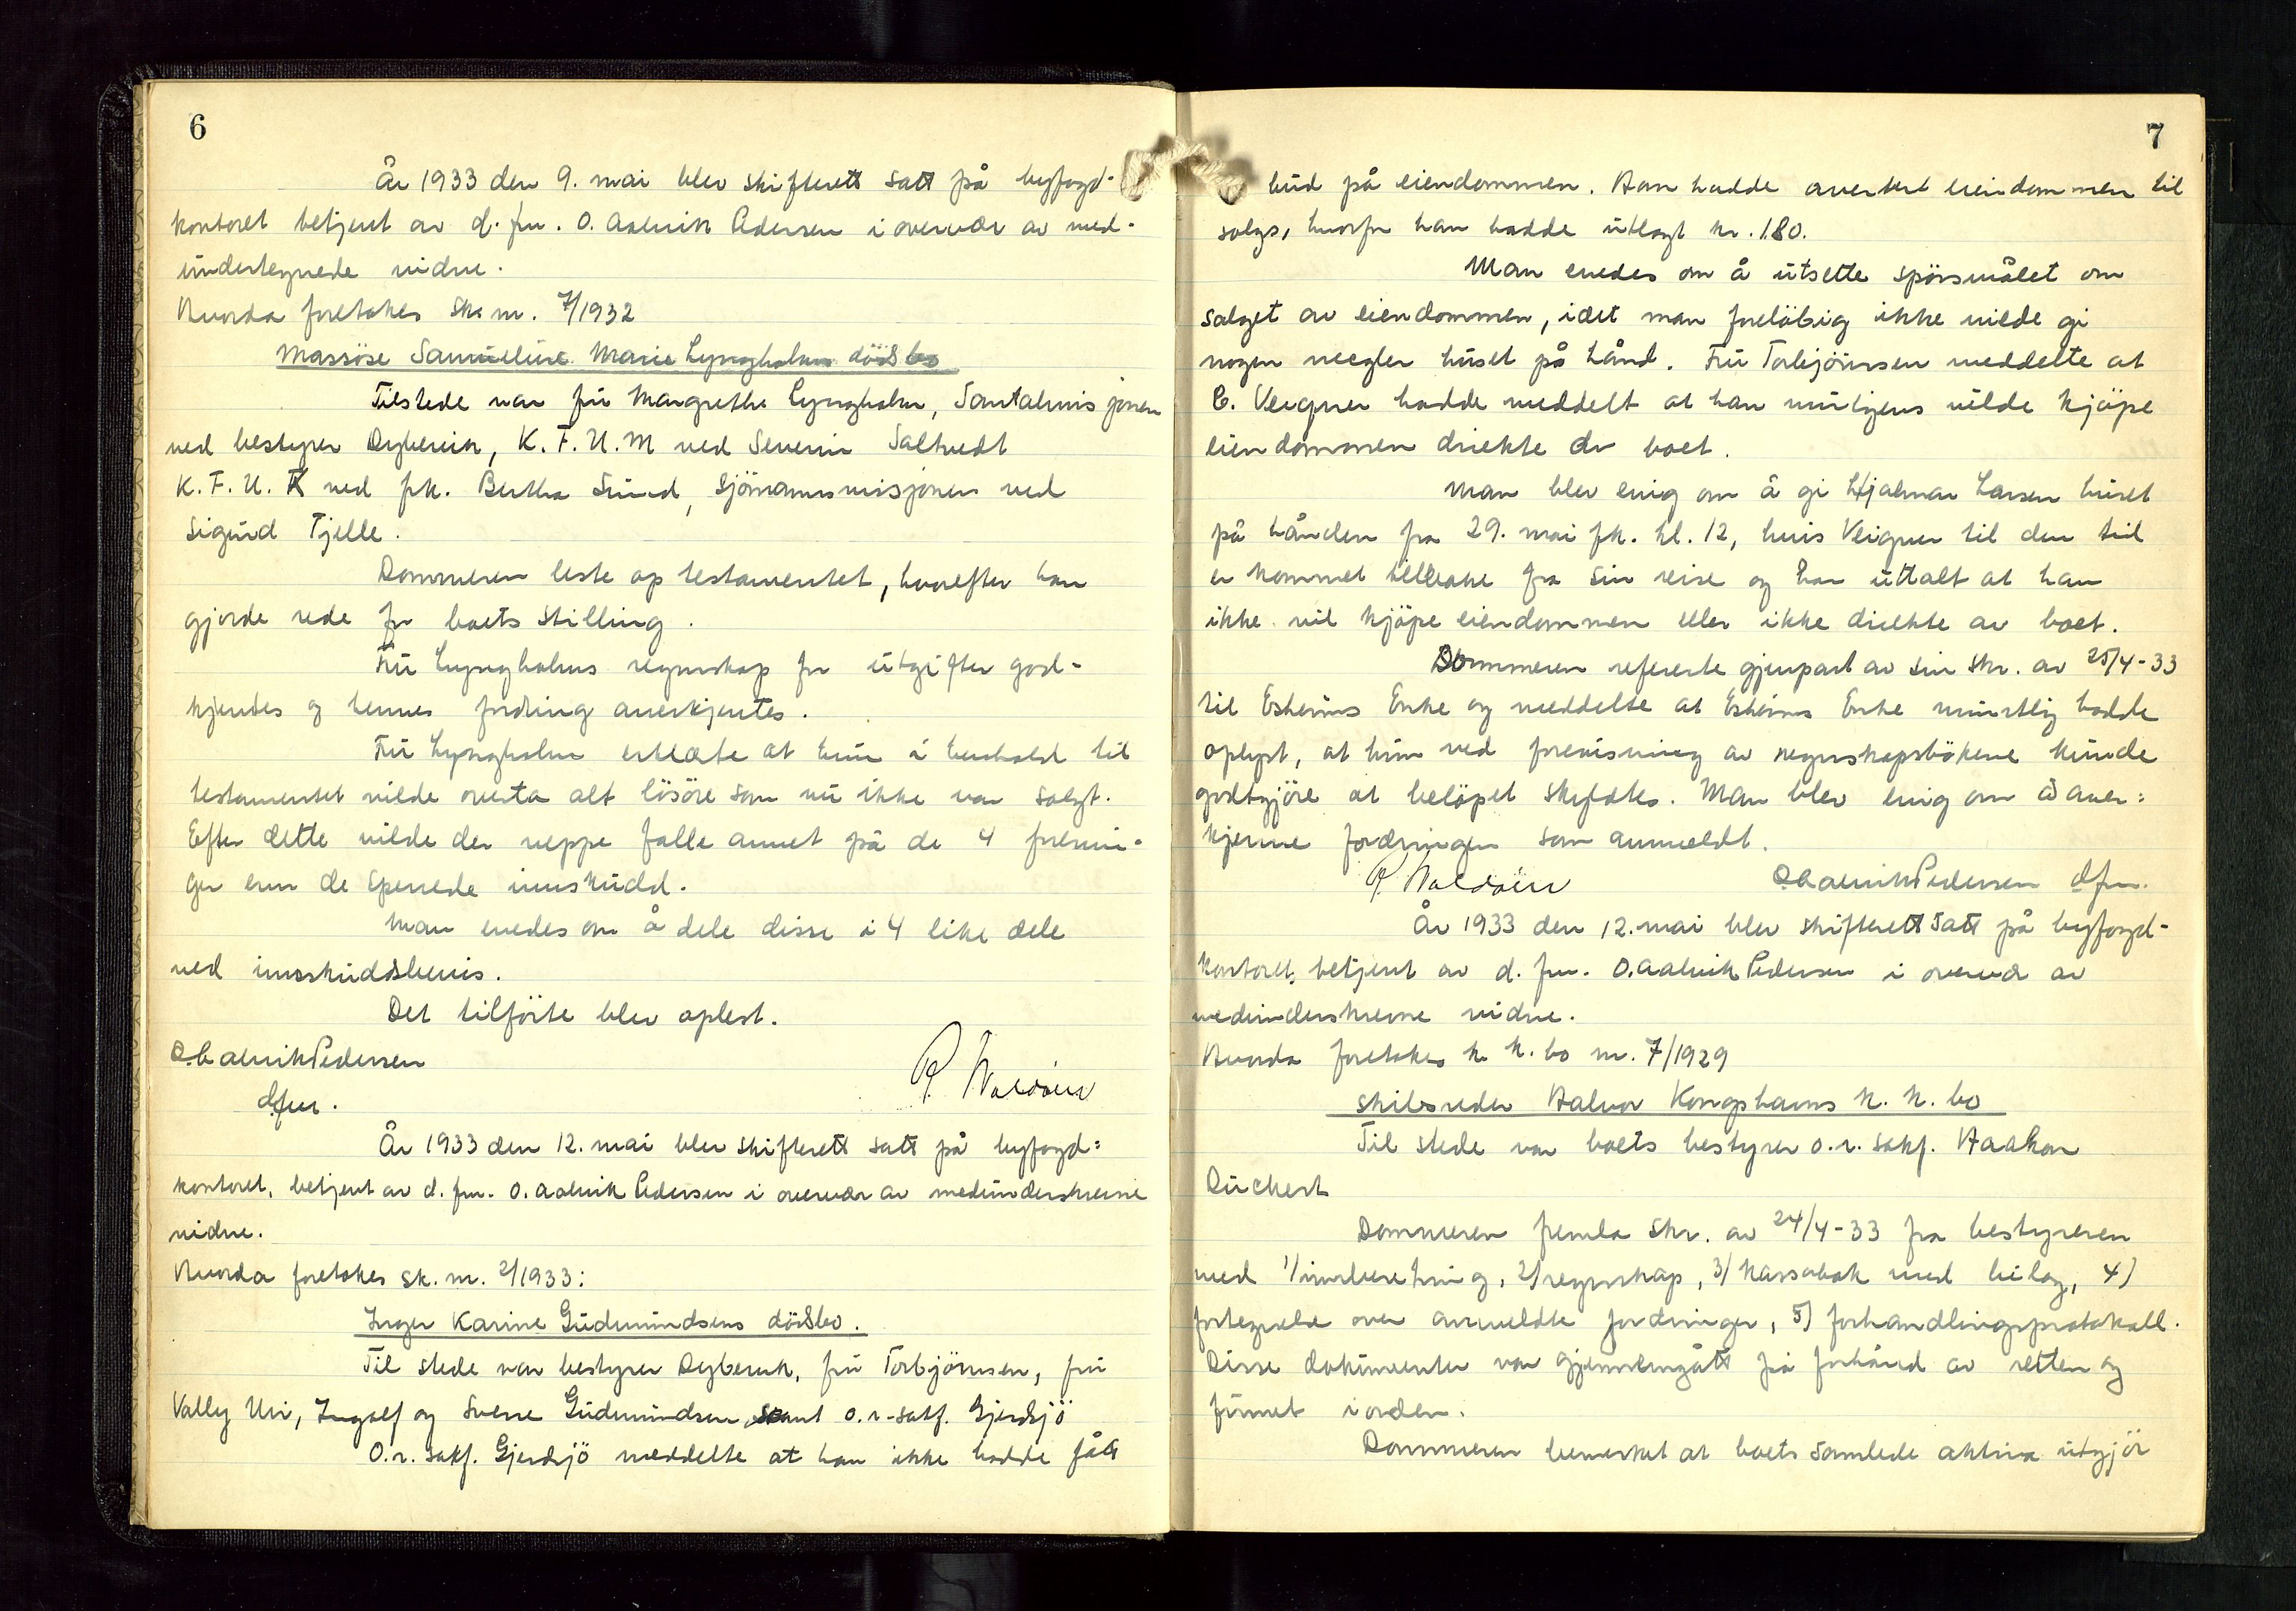 6
År 1933 den 9. mai blev skifterett satt på byfogd-
kontoret betjent av d. fm. O. Aalvik Pedersen i overvær av med-
undertegnede vidne.
Hvorda foretokes sk. nr. 7/1932
Massöse Samueline Marie Lyngholms dödsbo
Tilstede var fru Margrethe Lyngholm, Santalmisjonen
ved bestyrer Dybevik, K. F. U. M ved Severin Saltvedt
K. F. U. K ved frk. Bertha Sund, Sjömannsmisjonen ved
Sigurd Tjelle.
Dommeren leste op testamentet, hvorefter han
gjorde rede for boets stilling.
Fru Lyngholms regnskap for utgifter god-
kjendes og hennes fordring anerkjentes.
Fru Lyngholm erklærte at hun i henhold til
testamentet vilde overta alt lösöre som nu ikke var solgt.
Efter dette vilde der neppe falle annet på de 4 forenin-
ger enn de sperrede innskudd.
Man enedes om å dele disse i 4 like dele
ved innskuddsbevis.
Det tilförte blev oplest.
O. Aalvik Pedersen
dfm.
År 1933 den 12. mai blev skifterett satt på byfogd-
kontoret, betjent av d. fm. O. Aalvik Pedersen i overvær av medunderskrevne
vidne.
Hvorda foretokes sk. nr. 2/1933:
Inger Karine Gudmundsens dödsbo.
Til stede var bestyrer Dybevik, fru Torbjörnsen, fru
Vally Uri, Ingolf og Sverre Gudmundsen, samt o.r-sakf. Gjerdsjö
O.r. sakf. Gjerdsjö meddelte at han ikke hadde fått
7
bud på eiendommen. Han hadde avertert eiendommen til
salgs, hvorfor han hadde utlagt kr. 1.80.
Man enedes om å utsette spörsmålet om
salget av eiendommen, idet man forelöbig ikke vilde gi
nogen megler huset på hånd. Fru Torbjörnsen meddelte at
C. Veigner hadde meddelt at han muligens vilde kjöpe
eiendommen direkte av boet.
Man blev enig om å gi Hjalmar Larsen huset
på hånden fra 29. mai fk. kl. 12, hvis Veigner til den tid
er kommet tilbake fra sin reise og har uttalt at han
ikke vil kjöpe eiendommen eller ikke direkte av boet.
Dommeren refererte gjenpart av sin skr. av 25/4-33
til Eskeims Enke og meddelte at Eskeims Enke muntlig hadde
oplyst, at hun ved forevisning av regnskapsbökene kunde
godtgjöre at belöpet skyldtes. Man blev enig om å aner-
kjenne fordringen som anmeldt.
O. Aalvik Pedersen dfm.
År 1933 den 12. mai blev skifterett satt på byfogd-
kontoret, betjent av d. fm. O. Aalvik Pedersen i overvær av
medunderskrevne vidne.
Hvorda foretokes k. k. bo nr. 7/1929
skibsreder Halvor Kongshavns k. k. bo
Til stede var boets bestyrer o.r. sakf. Haakon
Duckert
Dommeren fremla skr. av 24/4-33 fra bestyreren
med 1/ innberetning, 2/ regnskap, 3/ kassabok med bilag, 4)
fortegnelse over anmeldte fordringer, 5) forhandlingsprotokoll.
Disse dokumenter var gjennemgått på forhånd av retten og
funnet i orden.
Dommeren bemerket at boets samlede aktiva utgjör